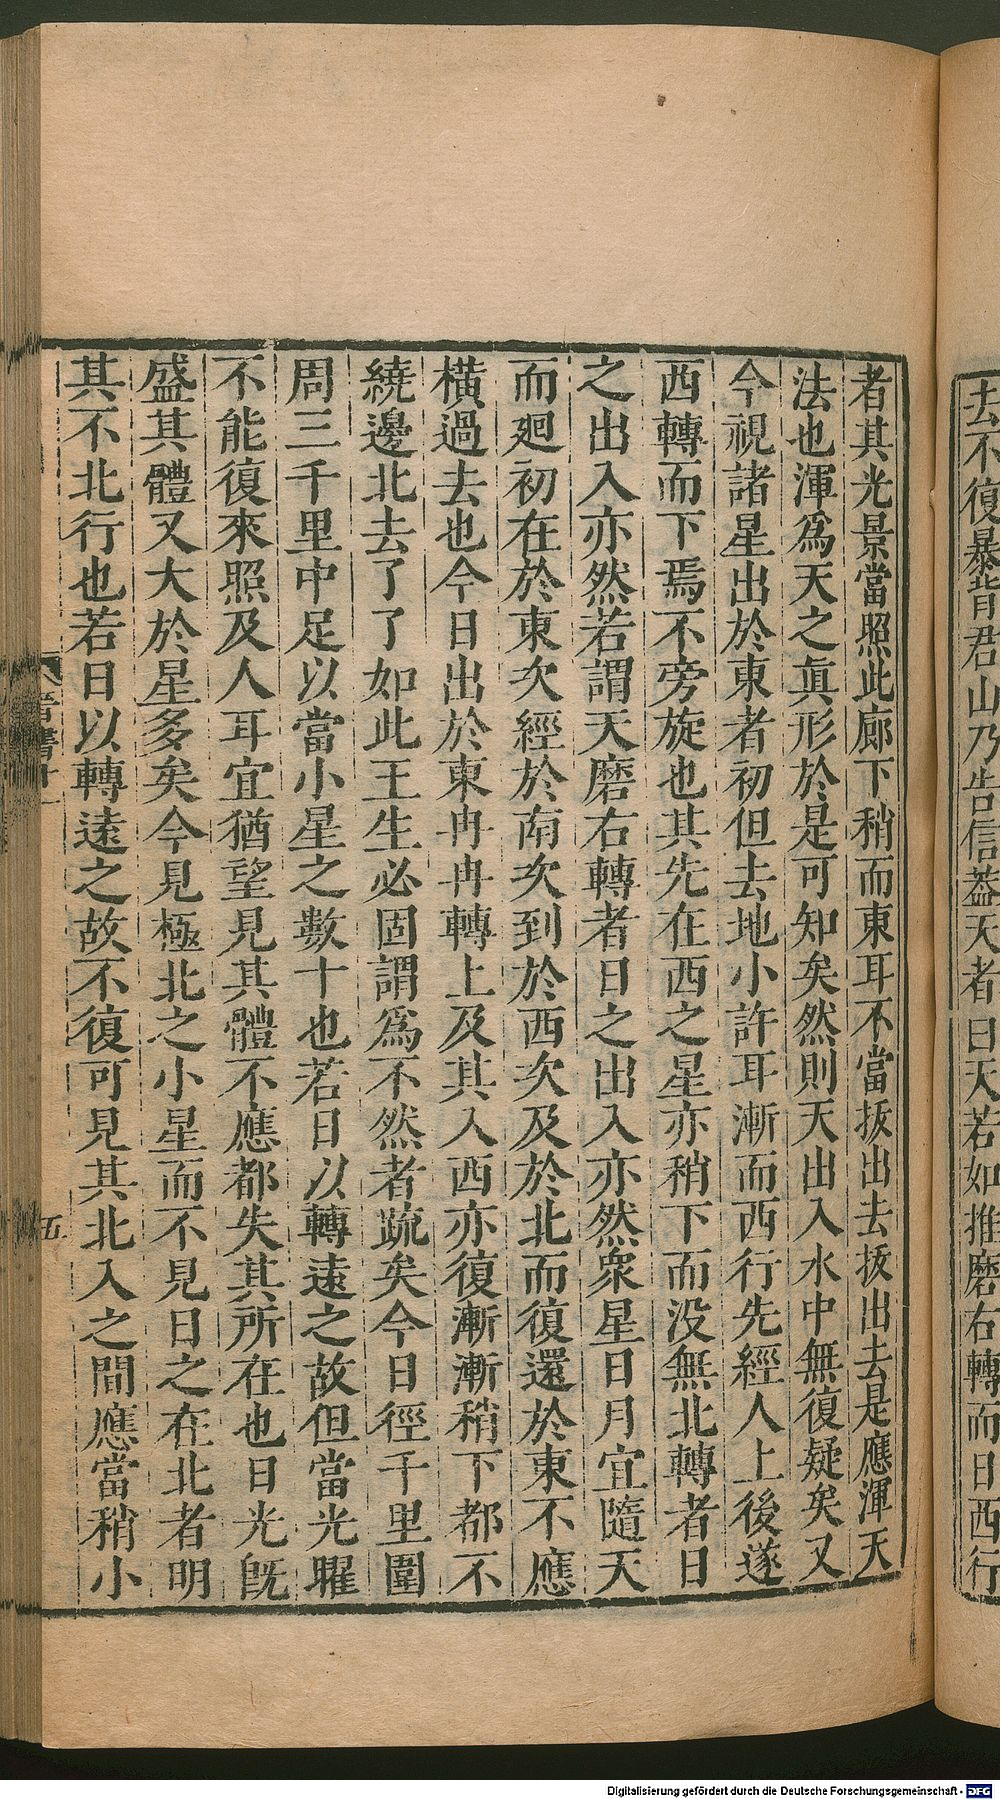 去不復暴背君山乃告信蓋天者曰天若如推磨右轉而日西行
者其光景當照此廊下稍而東耳不當拔出去拔出去是應渾天
法也渾爲天之眞形於是可知矣然則天出入水中無復疑矣又
今視諸星出於東者初但去地小許耳漸而西行先經人上後遂
西轉而下焉不旁旋也其先在西之星亦稍下而没無北轉者日
之出入亦然若謂天磨右轉者日之出入亦然衆星日月宜隨天
而廻初在於東次經於南次到於西次及於北而復還於東不應
橫過去也今日出於東冉冉轉上及其入西亦復漸漸稍下都不
繞邊北去了了如此王生必固謂爲不然者疏矣今日徑千里圍
周三千里中足以當小星之數十也若日以轉遠之故但當光曜
不能復來照及人耳宜猶望見其體不應都失其所在也日光旣
盛其體又大於星多矣今見極北之小星而不見日之在北者明
其不北行也若日以轉遠之故不復可見其北入之間應當稍小
晉書十一
五
Digitalisierung gefördert durch die Deutsche Forschungsgemeinschaft - DFG